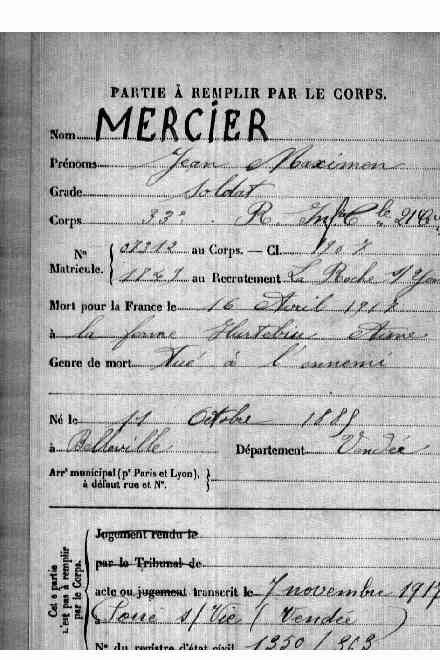 PARTIE À REMPLIR PAR LE CORPS.
Nom MERCIER
Prénoms Jean
Grade Soldat
Corps 33e R. Inf Cle 21 Cie
No Matricule. 07312 au Corps. — Cl. 1907
1847 au Recrutement La Roche s/Yon
Mort pour la France le 16 Avril 1917
à la ferme Hurtebise Aisne
Genre de mort Tué à l'ennemi
Né le 11 Octobre
à Belleville Département Vendée
Arrt municipal (pr Paris et Lyon),
à défaut rue et No.
Cette partie n'est pas à remplir par le Corps.
Jugement rendu le
par le Tribunal de
acte ou jugement transcrit le 7 novembre 1917
s/Vie (Vendée)
No du registre d'état civil 1350/363